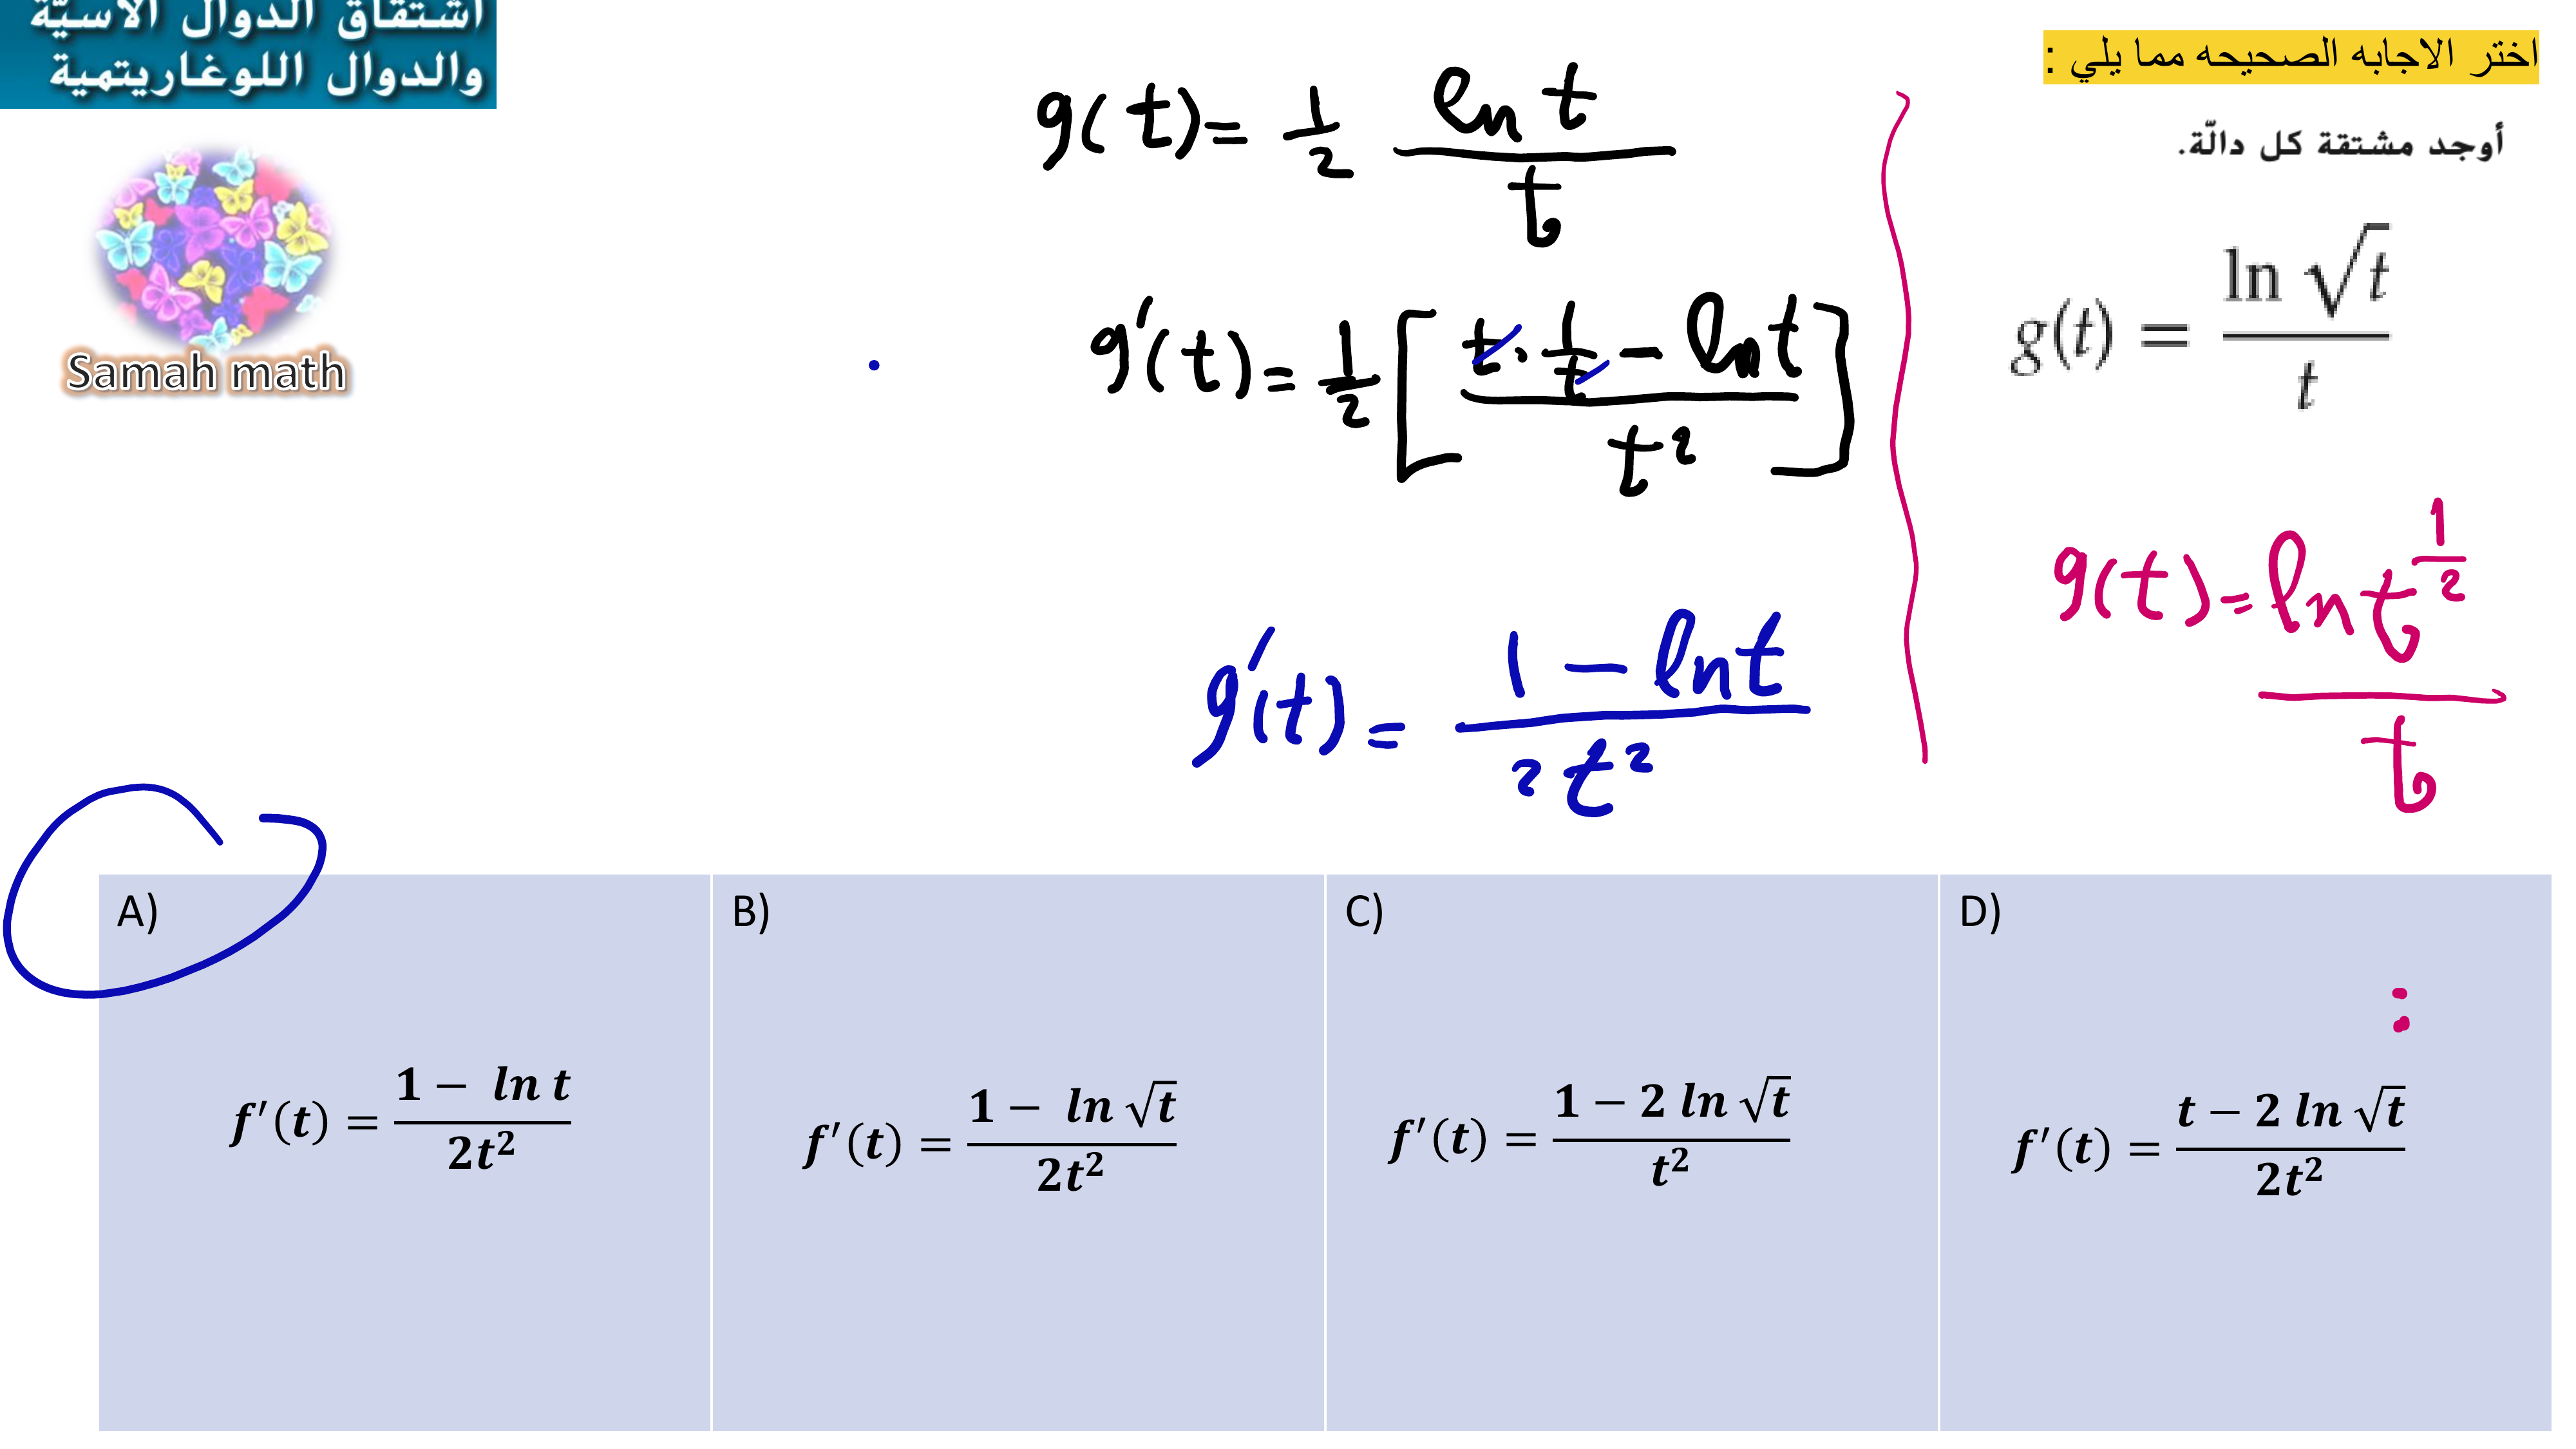 اشتقاق الدوال الأسيّة
والدوال اللوغاريتمية
Samah math
اختر الاجابه الصحيحه مما يلي :
أوجد مشتقة كل دالّة.
g(t) = ln √t / t
g(t) = ln t^(1/2) / t
g(t) = 1/2 ln t / t
g'(t) = 1/2 [ (t · 1/t − ln t) / t² ]
g'(t) = (1 − ln t) / 2t²
A)
f′(t) = (1 − ln t) / 2t²
B)
f′(t) = (1 − ln √t) / 2t²
C)
f′(t) = (1 − 2 ln √t) / t²
D)
f′(t) = (t − 2 ln √t) / 2t²